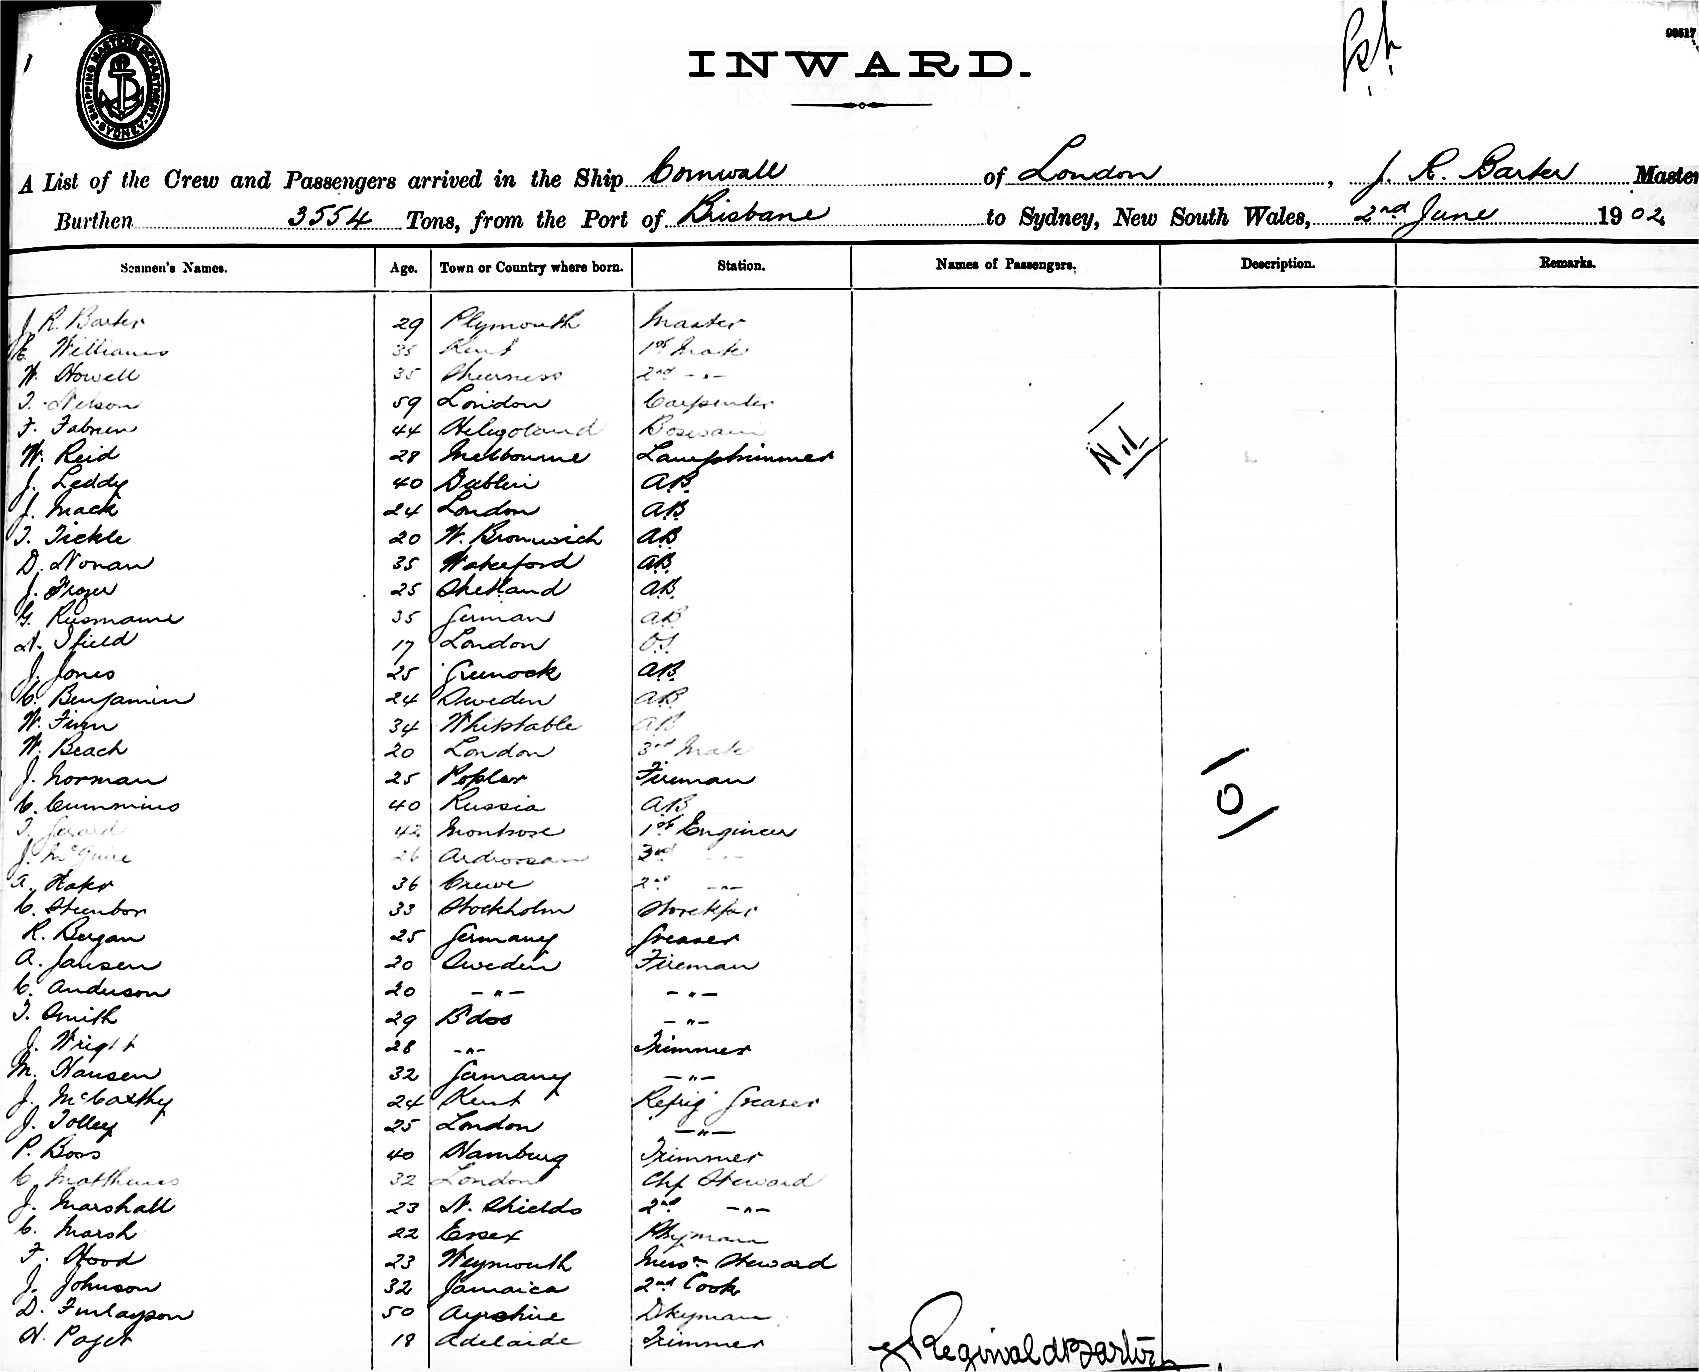 SHIPPING MASTER'S DEPARTMENT SYDNEY
INWARD.
A List of the Crew and Passengers arrived in the Ship Cornwall of London, J. R. Barter Master
Burthen 3554 Tons, from the Port of Brisbane to Sydney, New South Wales, 2nd June 1902
Seamen's Names. Age. Town or Country where born. Station. Names of Passengers. Description. Remarks.
J. R. Barter 29 Plymouth Master
Williams 35 Kent 1st Mate
W. Howell 35 Sheerness 2nd -"-
T. Nelson 59 London Carpenter
F. Fabrien 44 Heligoland Boswain
W. Reid 28 Melbourne Lamptrimmer
Nil
J. Leddy 40 Dublin AB.
J. Mack 24 London AB
T. Tickle 20 W. Bromwich AB
D. Nonan 35 Waterford AB.
J. Frazer 25 Shetland AB.
G. 35 German AB
A. Ifield 17 London OS
J. Jones 25 Greenock AB.
C. Benjamin 24 Sweden AB
W. Finn 34 Whitstable AB
W. Beach 20 London 3rd Mate
J. Norman 25 Poplar Fireman
C. Cummins 40 Russia AB
0
T. Gerard 42 Montrose 1st Engineer
J. McGuire 26 Ardrossan 3rd -"-
A. 36 Crewe 2nd -"-
C. Steenbor 33 Stockholm Storekpr
R. Bergan 25 Germany Greaser
A. Jansen 20 Sweden Fireman
C. Anderson 20 -"- -"-
T. Smith 29 B'dos -"-
J. Wright 28 -"- Trimmer
M. Hansen 32 Germany -"-
J. McCarthy 24 Kent Refrig Greaser
J. Tolley 25 London -"-
P. Boss 40 Hamburg Trimmer
C. Matthews 32 London Chf Steward
J. Marshall 23 N. Shields 2nd -"-
C. Marsh 22 Essex Ptryman
F. Hood 23 Weymouth Mess Steward
J. Johnson 32 Jamaica 2nd Cook
D. Finlayson 50 Ayrshire Dkeyman
H. Paget 18 Adelaide Trimmer
Reginald Barter